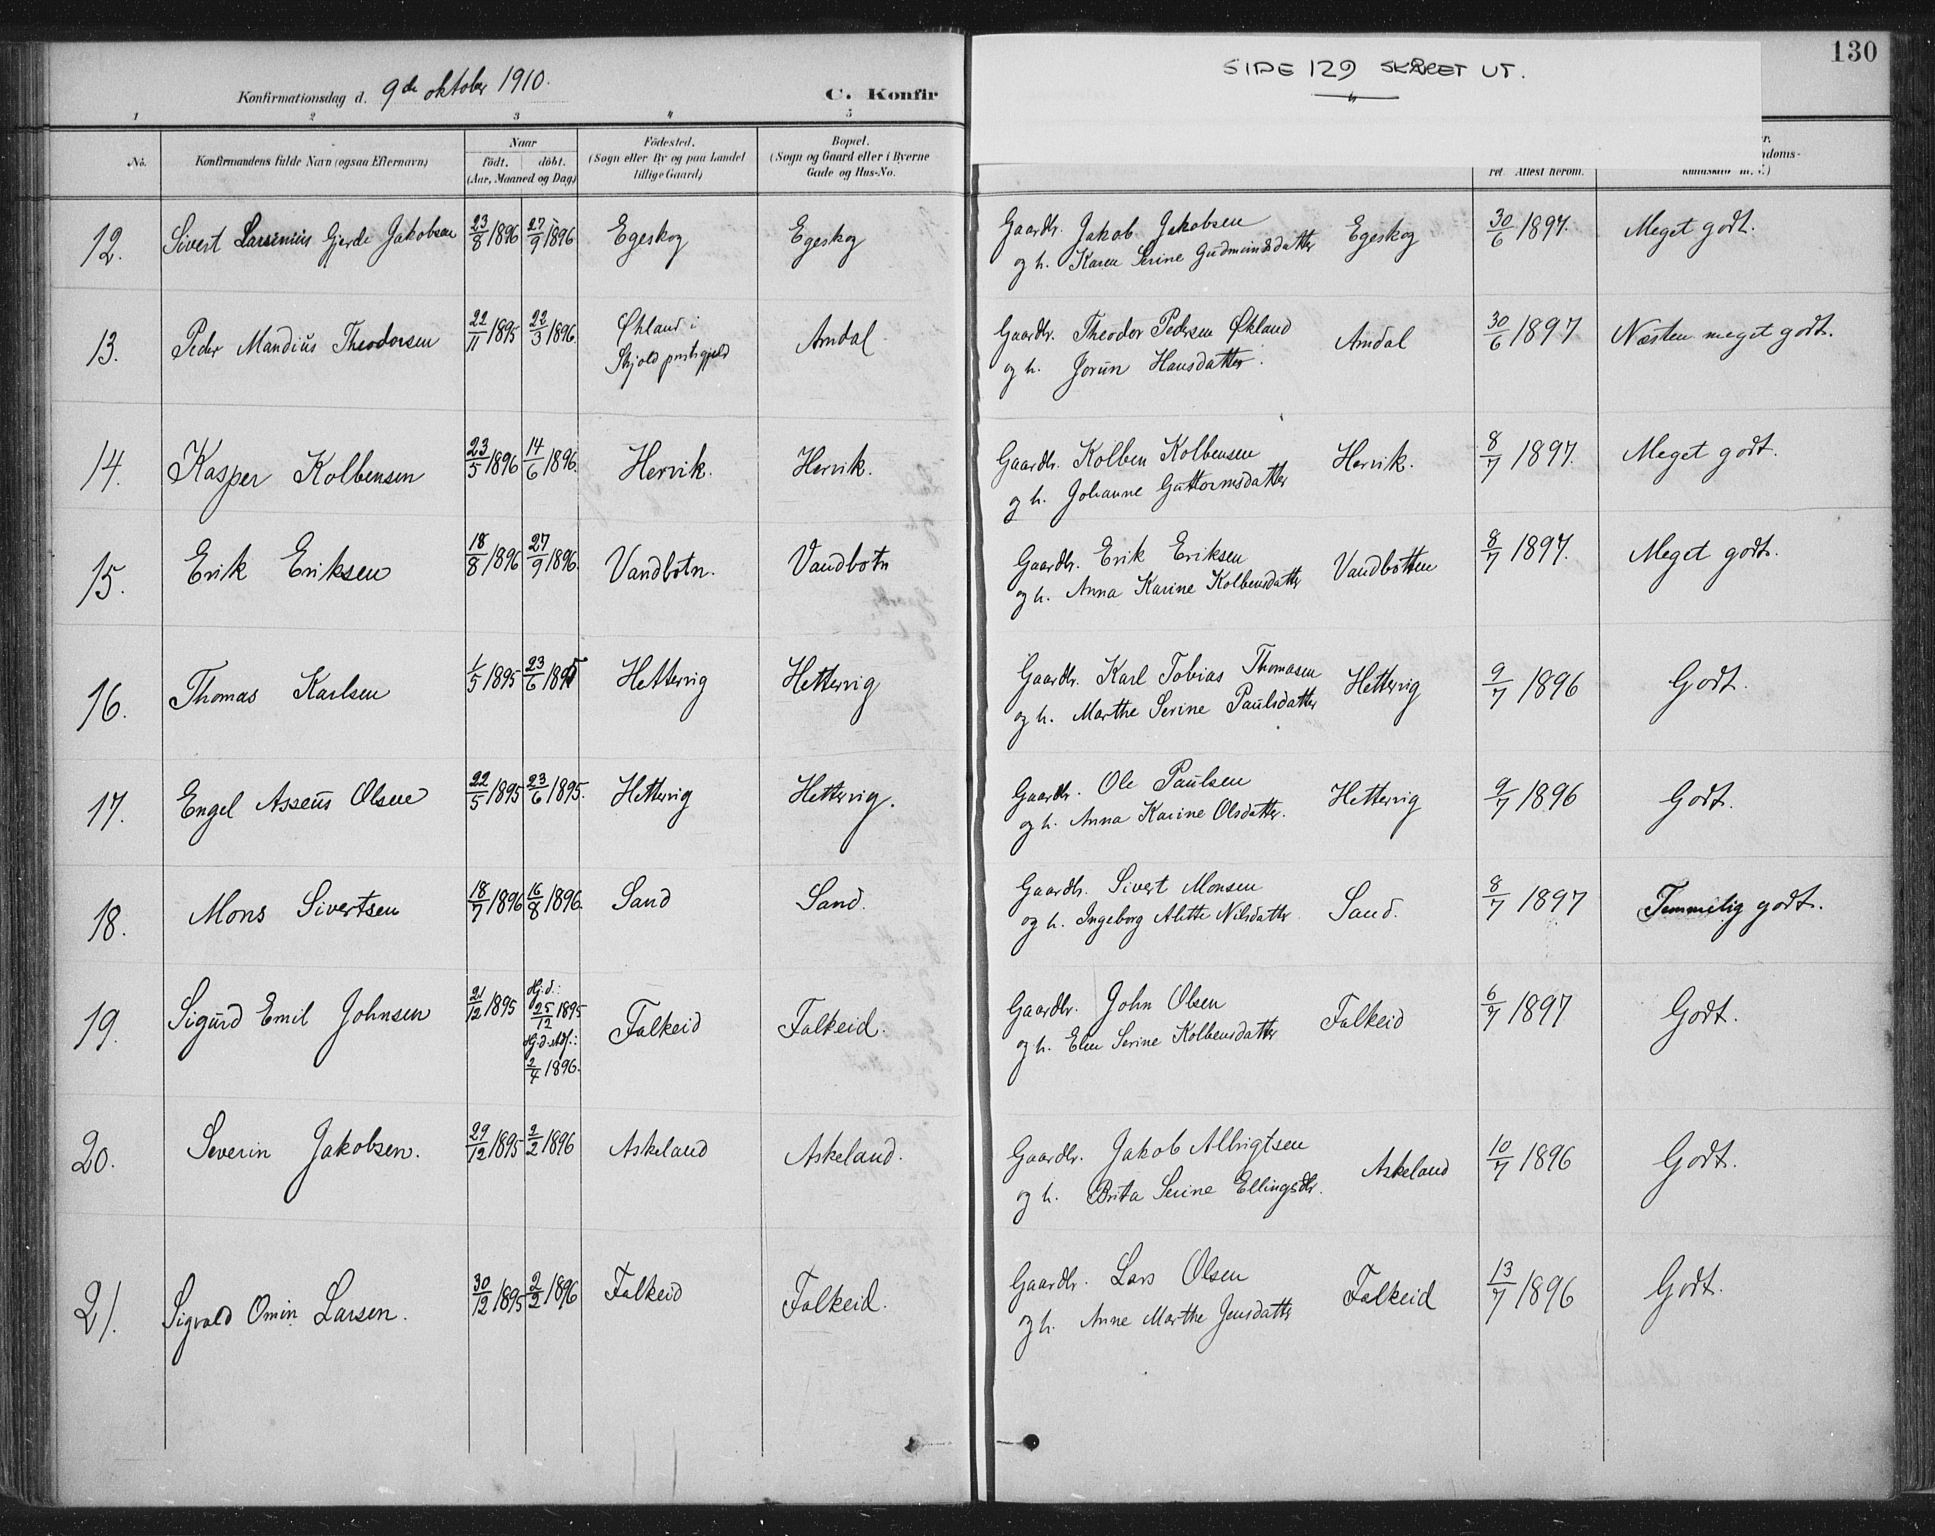 Konfirmationsdag d. 9de oktober 1910.
C. Konfir
SIDE 129 SKÅRET UT.
130
1 2 3 4 5
No.
Konfirmandens fulde Navn (ogsaa Efternavn)
Naar
født. døbt.
(Aar, Maaned og Dag)
Fødested.
(Sogn eller By og paa Landet
tillige Gaard)
Bopæl.
(Sogn og Gaard eller i Byerne
Gade og Hus-No.
12. Sivert Larsinius Gjerde Jakobsen 23/8 1896 27/9 1896 Egeskog Egeskog Gaardbr. Jakob Jakobsen Egeskog 30/6 1897. Meget godt.
og h. Karen Serine Gudmundsdatter
13. Peder Mandius Theodorsen 22/11 1895 22/3 1896. Økland i Amdal Gaardbr. Theodor Pedersen Økland Amdal 30/6 1897 Næsten meget godt.
Skjold prestegjeld og h. Jorun Hansdatter.
14. Kasper Kolbensen 23/5 1896 14/6 1896. Hervik. Hervik. Gaardbr. Kolben Kolbensen Hervik. 8/7 1897. Meget godt.
og h. Johanne Guttormsdatter
15. Erik Eriksen 18/8 1896 27/9 1896. Vandbotn. Vandbotn Gaardbr. Erik Eriksen Vandbotten 8/7 1897. Meget godt.
og h. Anna Karine Kolbensdatter
16. Thomas Karlsen 1/5 1895 23/6 1895 Hettervig Hettervig Gaardbr. Karl Tobias Thomasen Hettervig 9/7 1896 Godt.
og h. Marthe Serine Paulsdatter
17. Engel Asseus Olsen 22/5 1895 23/6 1895. Hettervig Hettervig. Gaardbr. Ole Paulsen Hettervig 9/7 1896 Godt.
og h. Anna Karine Olsdatter.
18. Mons Sivertsen 18/7 1896 16/8 1896. Sand Sand. Gaardbr. Sivert Monsen Sand. 8/7 1897 Temmelig godt.
og h. Ingeborg Alette Nilsdatter
19. Sigurd Emil Johnsen 21/12 1895 Hj.d.: 25/12 1895 Falkeid Falkeid. Gaardbr. John Olsen Falkeid 6/7 1897 Godt.
2/4 1896. og h. Elen Serine Kolbensdatter
20. Severin Jakobsen. 29/12 1895 2/2 1896 Askeland Askeland. Gaardbr. Jakob Albrigtsen Askeland 10/7 1896 Godt.
og h. Brita Serine Ellingsdtr.
21. Sigvald Omin Larsen. 30/12 1895 2/2 1896 Falkeid Falkeid. Gaardbr. Lars Olsen Falkeid 13/7 1896 Godt.
og h. Anne Marthe Jensdatter